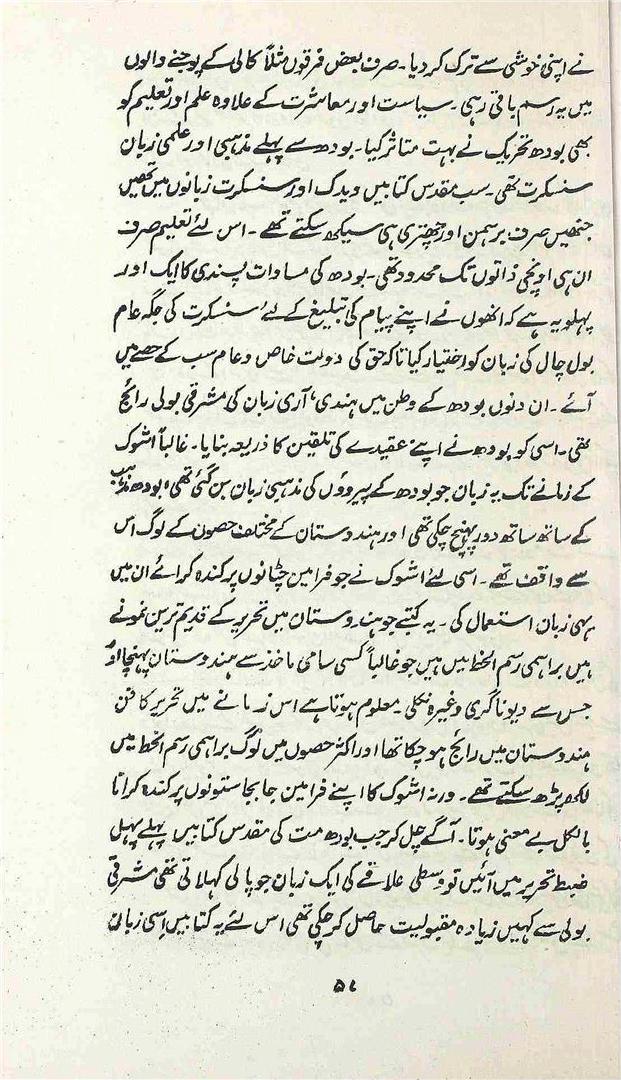 نے اپنی خوشی سے ترک کر دیا۔ صرف بعض فرقوں مثلاً کالی کے پوجنے والوں
میں یہ رسم باقی رہی۔ سیاست اور معاشرت کے علاوہ علم اور تعلیم کو
بھی بودھ تحریک نے بہت متاثر کیا۔ بودھ سے پہلے مذہبی اور علمی زبان
سنسکرت تھی۔ سب مقدس کتابیں ویدک اور سنسکرت زبانوں میں تھیں
جنھیں صرف برہمن اور چھتری ہی سیکھ سکتے تھے۔ اس لئے تعلیم صرف
ان ہی اونچی ذاتوں تک محدود تھی۔ بودھ کی مساوات پسندی کا ایک اور
پہلو یہ ہے کہ انھوں نے اپنے پیام کی تبلیغ کے لئے سنسکرت کی جگہ عام
بول چال کی زبان کو اختیار کیا تاکہ حق کی دولت خاص و عام سب کے حصے میں
آئے۔ ان دنوں بودھ کے وطن میں ہندی، آری زبان کی مشرقی بولی رائج
تھی۔ اسی کو بودھ نے اپنے عقیدے کی تلقین کا ذریعہ بنایا۔ غالباً اشوک
کے زمانے تک یہ زبان جو بودھ کے پیروؤں کی مذہبی زبان بن گئی تھی، بودھ مذہب
کے ساتھ ساتھ دور پہنچ چکی تھی اور ہندوستان کے مختلف حصوں کے لوگ اس
سے واقف تھے۔ اسی لئے اشوک نے جو فرامین چٹانوں پر کندہ کرائے ان میں
یہی زبان استعمال کی۔ یہ کتبے جو ہندوستان میں تحریر کے قدیم ترین نمونے
ہیں براہمی رسم الخط میں ہیں جو غالباً کسی سامی ماخذ سے ہندوستان پہنچا اور
جس سے دیوناگری وغیرہ نکلی۔ معلوم ہوتا ہے اس زمانے میں تحریر کا فن
ہندوستان میں رائج ہو چکا تھا اور اکثر حصوں میں لوگ براہمی رسم الخط میں
لکھ پڑھ سکتے تھے۔ ورنہ اشوک کا اپنے فرامین جا بجا ستونوں پر کندہ کرانا
بالکل بے معنی ہوتا۔ آگے چل کر جب بودھ مت کی مقدس کتابیں پہلے پہل
ضبط تحریر میں آئیں تو وسطی علاقے کی ایک زبان جو پالی کہلاتی تھی مشرقی
بولی سے کہیں زیادہ مقبولیت حاصل کر چکی تھی اس لئے یہ کتابیں اسی زبان